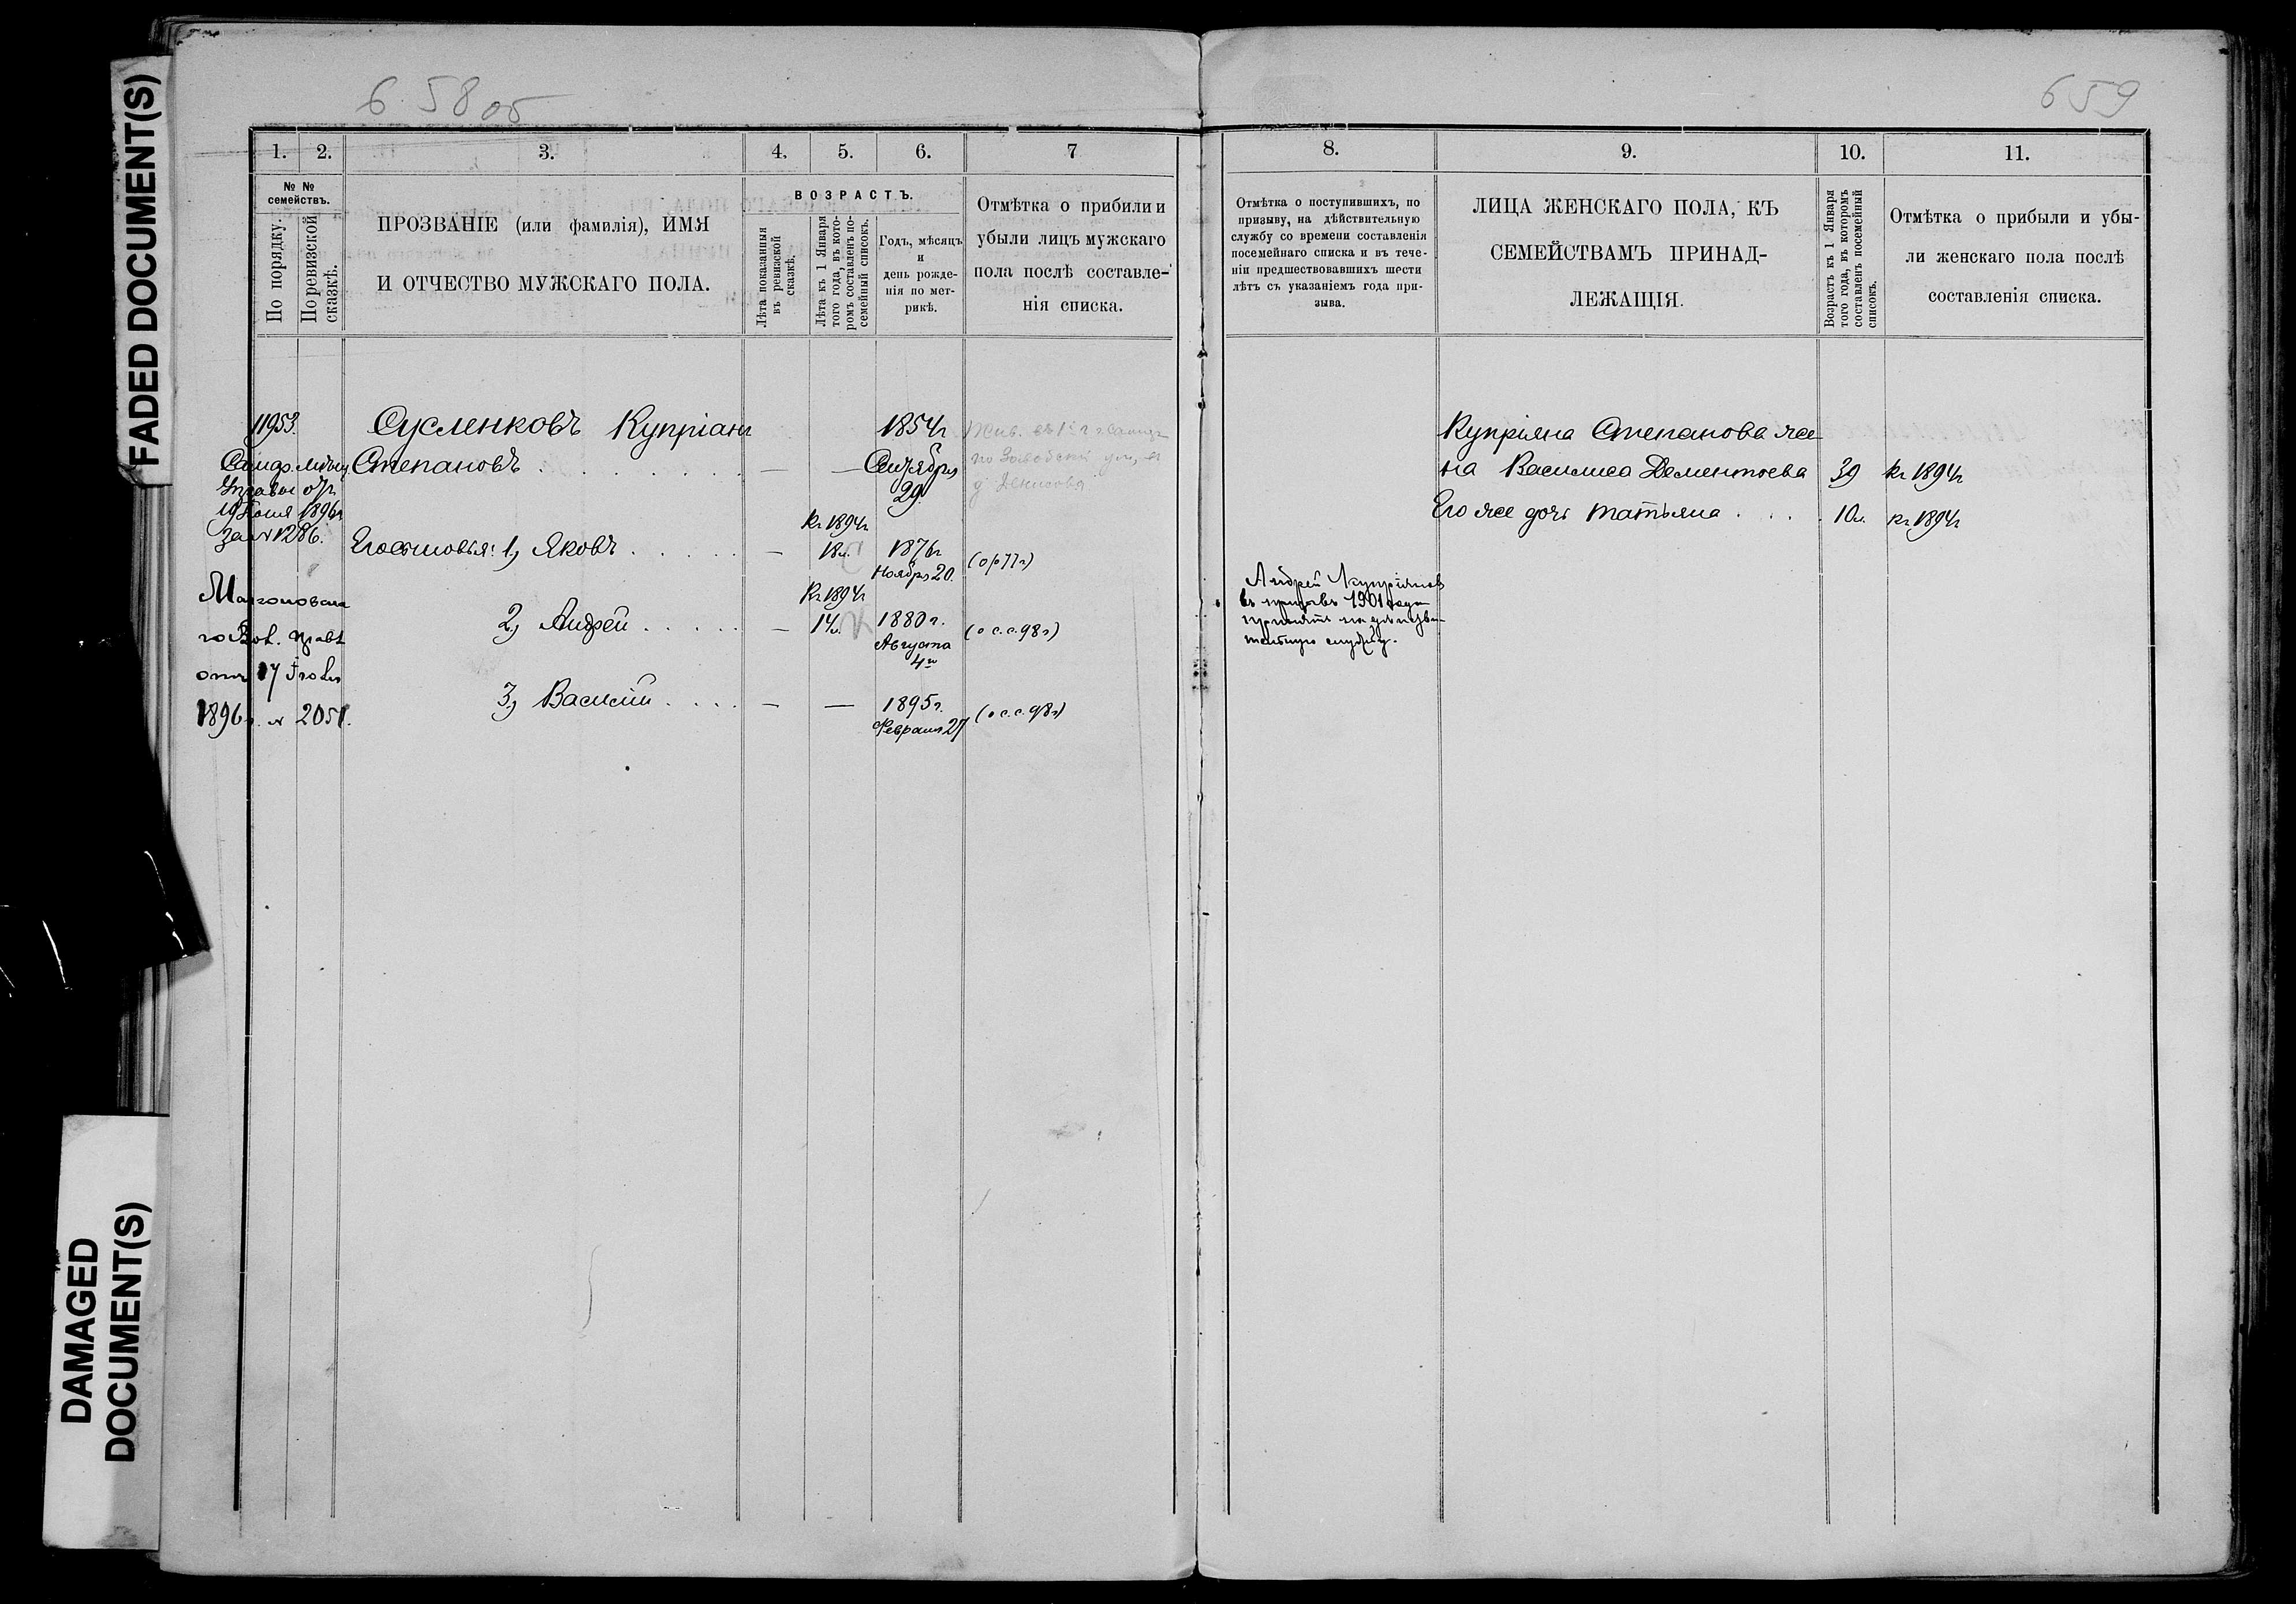 FADED DOCUMENT(S)
DAMAGED
DOCUMENT(S)
658 об
659
1. 2. 3. 4. 5. 6. 7
№ №
семействъ.
По порядку.
По ревизской
сказкѣ.
ПРОЗВАНІЕ (или фамилія), ИМЯ
И ОТЧЕСТВО МУЖСКАГО ПОЛА.
ВОЗРАСТЪ.
Лѣта показанныя
въ ревизской
сказкѣ.
Лѣта къ 1 Января
того года, въ кото-
ромъ составленъ по-
семейный списокъ.
Годъ, мѣсяцъ
и
день рожде-
нія по мет-
рикѣ.
Отмѣтка о прибили и
убыли лицъ мужскаго
пола послѣ составле-
нія списка.
11953.
Сусленковъ Купріанъ
Степановъ
1854г
Сентября
29.
Управы отъ
19 Іюня 1896г
за № 1286.
Его сыновья: 1, Яковъ
Къ 1894г
18л.
1876г
Ноября 20.
2, Андрей
Къ 1894г
14л.
1880г.
Августа
4го
(о с.с. 98г)
3, Василій
1895г.
Февраля 27
(о с.с. 98г)
отъ 17
1896г. № 2051.
8. 9. 10. 11.
Отмѣтка о поступившихъ, по
призыву, на дѣйствительную
службу со времени составленія
посемейнаго списка и въ тече-
ніи предшествовавшихъ шести
лѣтъ съ указаніемъ года при-
зыва.
ЛИЦА ЖЕНСКАГО ПОЛА, КЪ
СЕМЕЙСТВАМЪ ПРИНАД-
ЛЕЖАЩІЯ.
Возрастъ къ 1 Января
того года, въ которомъ
составленъ посемейный
списокъ.
Отмѣтка о прибыли и убы-
ли женскаго пола послѣ
составленія списка.
Купріяна Степанова же-
на Василиса Дементьева 39 къ 1894г
Его же дочь Татьяна 10л. къ 1894г
Андрей Купріяновъ
въ призывъ 1901 года
принятъ на дѣйстви-
тельную службу.